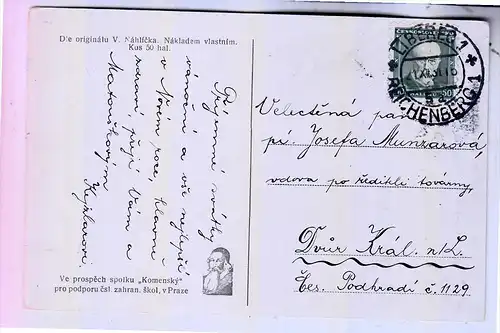 Dle originálu V. Náhlíčka. Nákladem vlastním.
Kus 50 hal.
Příjemné svátky
vánoční a vše nejlepší
v Novém roce, hlavně
zdraví, přejí Vám a
Matouškovým
Kejzlarovi.
Ve prospěch spolku „Komenský"
pro podporu čsl. zahran. škol, v Praze
LIBEREC 1
REICHENBERG 1
ČESKOSLOVENSKO
50
Velectěná paní
pí. Josefa Munzarová,
vdova po řediteli továrny,
Dvůr Král. n/L.
Čes. Podhradí č. 1129.